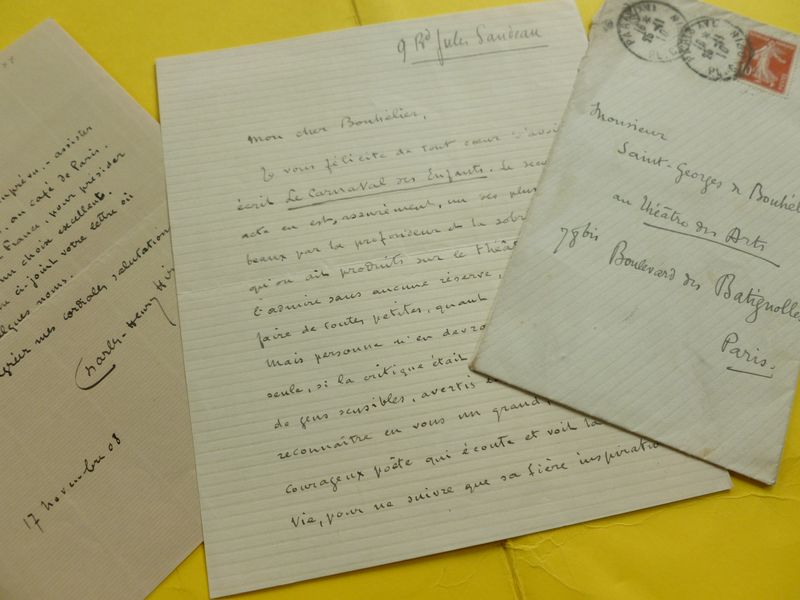 imprévu - assister
au café de Paris.
France, pour présider
un choix excellent.
ci-joint votre lettre où
quelques noms.
agréer mes cordiales salutations
Charles-Henry Hirs
17 novembre 08
9 Bd Jules Sandeau
Mon cher Bouhélier,
Je vous félicite de tout cœur d'avoir
écrit Le Carnaval des Enfants. Le seco
acte en est, assurément, un des plus
beaux par la profondeur et la sobr
qu'on ait produits sur le théât
l'admire sans aucune réserve,
faire de toutes petites, quant
Mais personne n'en devra
seule, si la critique était
de gens sensibles, avertis
reconnaître en vous un grand,
courageux poète qui écoute et voit la
vie, pour ne suivre que sa fière inspiratio
PARIS
Monsieur
Saint-Georges de Bouhél
au Théâtre des Arts
78bis
Boulevard des Batignolles
Paris.